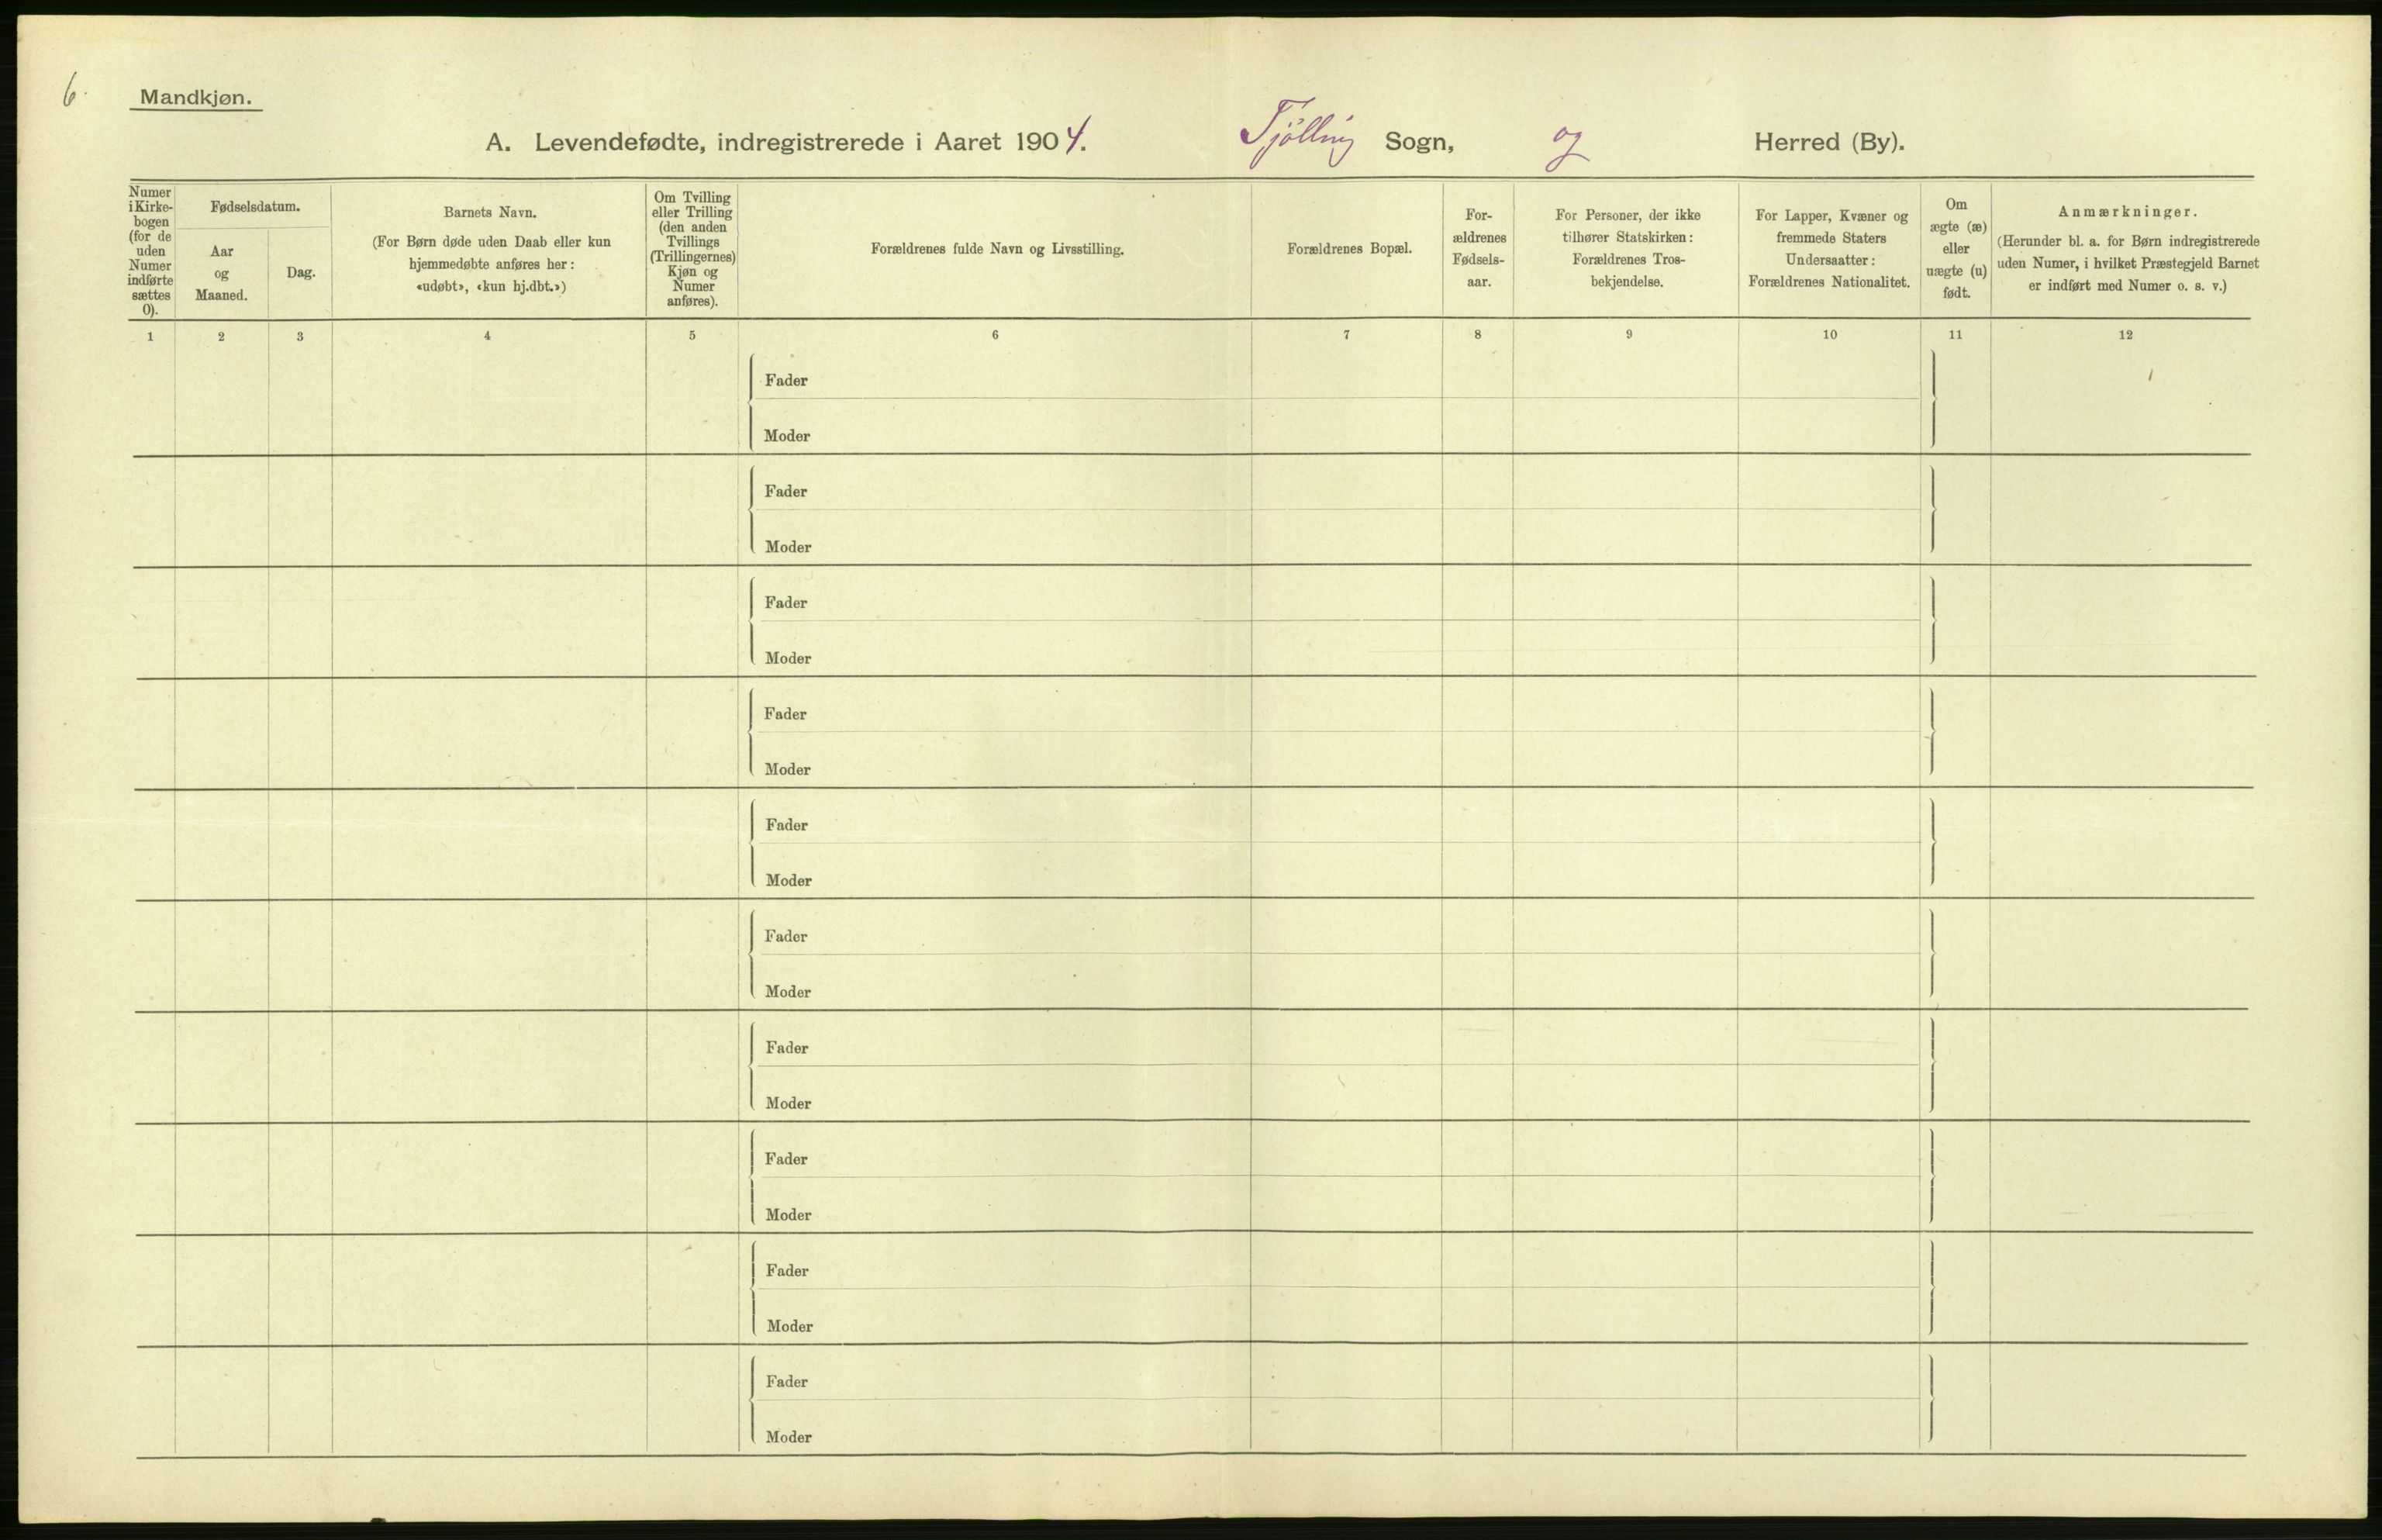 6.
Mandkjøn.
A. Levendefødte, indregistrerede i Aaret 1904. Tjölling Sogn, og Herred (By).
Numer i Kirke-bogen (for de uden Numer indførte sættes 0).
Fødselsdatum.
Aar og Maaned.
Dag.
Barnets Navn.
(For Børn døde uden Daab eller kun
hjemmedøbte anføres her:
«udøbt», «kun hj.dbt.»)
Om Tvilling
eller Trilling
(den anden
Tvillings
(Trillingernes)
Kjøn og
Numer
anføres).
Forældrenes fulde Navn og Livsstilling.
Forældrenes Bopæl.
For-
ældrenes
Fødsels-
aar.
For Personer, der ikke
tilhører Statskirken:
Forældrenes Tros-
bekjendelse.
For Lapper, Kvæner og
fremmede Staters
Undersaatter:
Forældrenes Nationalitet.
Om
ægte (æ)
eller
uægte (u)
født.
Anmærkninger.
(Herunder bl. a. for Børn indregistrerede
uden Numer, i hvilket Præstegjeld Barnet
er indført med Numer o. s. v.)
1 2 3 4 5 6 7 8 9 10 11 12
Fader
Moder
Fader
Moder
Fader
Moder
Fader
Moder
Fader
Moder
Fader
Moder
Fader
Moder
Fader
Moder
Fader
Moder
Fader
Moder